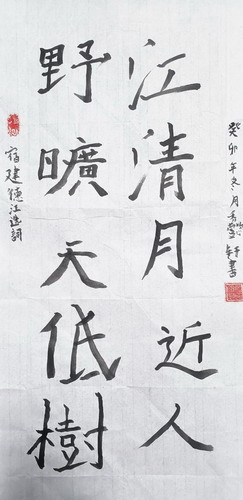 宿建德江
野曠天低樹
江清月近人
癸卯年冬月 書